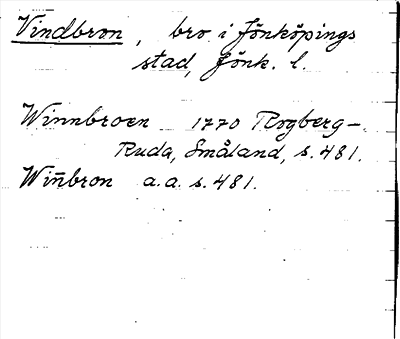 Vindbron, bro i Jönköpings
stad, Jönk. l.
Winnbroen 1770 Rogberg-
Ruda, Småland, s. 481.
Win̄bron a.a. s. 481.